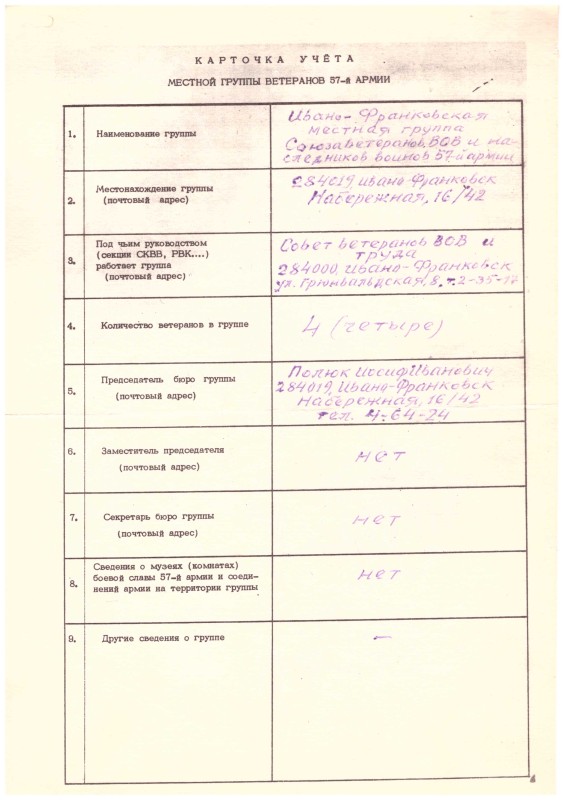 КАРТОЧКА УЧЁТА
МЕСТНОЙ ГРУППЫ ВЕТЕРАНОВ 57-й АРМИИ
1. Наименование группы
Ивано-Франковская
местная группа
Союза ветеранов ВОВ и на-
следников воинов 57-й армии
2. Местонахождение группы
(почтовый адрес)
284019, Ивано-Франковск
Набережная, 16/42
3. Под чьим руководством
(секции СКВВ, РВК....)
работает группа
(почтовый адрес)
Совет ветеранов ВОВ и
труда
284000, Ивано-Франковск
ул. Грюнвальдская, 8, т. 2-35-17
4. Количество ветеранов в группе
4 (четыре)
5. Председатель бюро группы
(почтовый адрес)
Полюк Иосиф Иванович
284019, Ивано-Франковск
Набережная, 16/42
тел. 4-64-24
6. Заместитель председателя
(почтовый адрес)
нет
7. Секретарь бюро группы
(почтовый адрес)
нет
8. Сведения о музеях (комнатах)
боевой славы 57-й армии и соеди-
нений армии на территории группы
нет
9. Другие сведения о группе
—